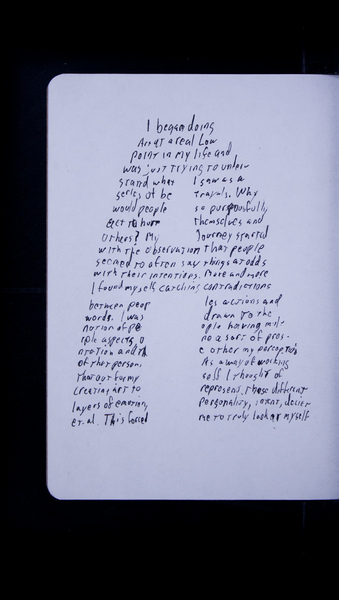 I began doing
Art at a real Low
point in my life and
was just trying to under
stand what I saw as a
series of be trayals. Why
would people so purposfully
act to hurt themselves and
others? My Journey started
with the observation that people
seemed to often say things at odds
with their intentions. More and more
I found myself catching contradictions
between peop les actions and
words. I was drawn to the
notion of pe ople having mult
iple aspects, a no a sort of pres-
ntation and th e other my perception
of that person. As a way of working
that out for my self I thought of
creating art to represent these different
layers of emotion, personality, intent, deciet
et. al. This forced me to truly look at myself